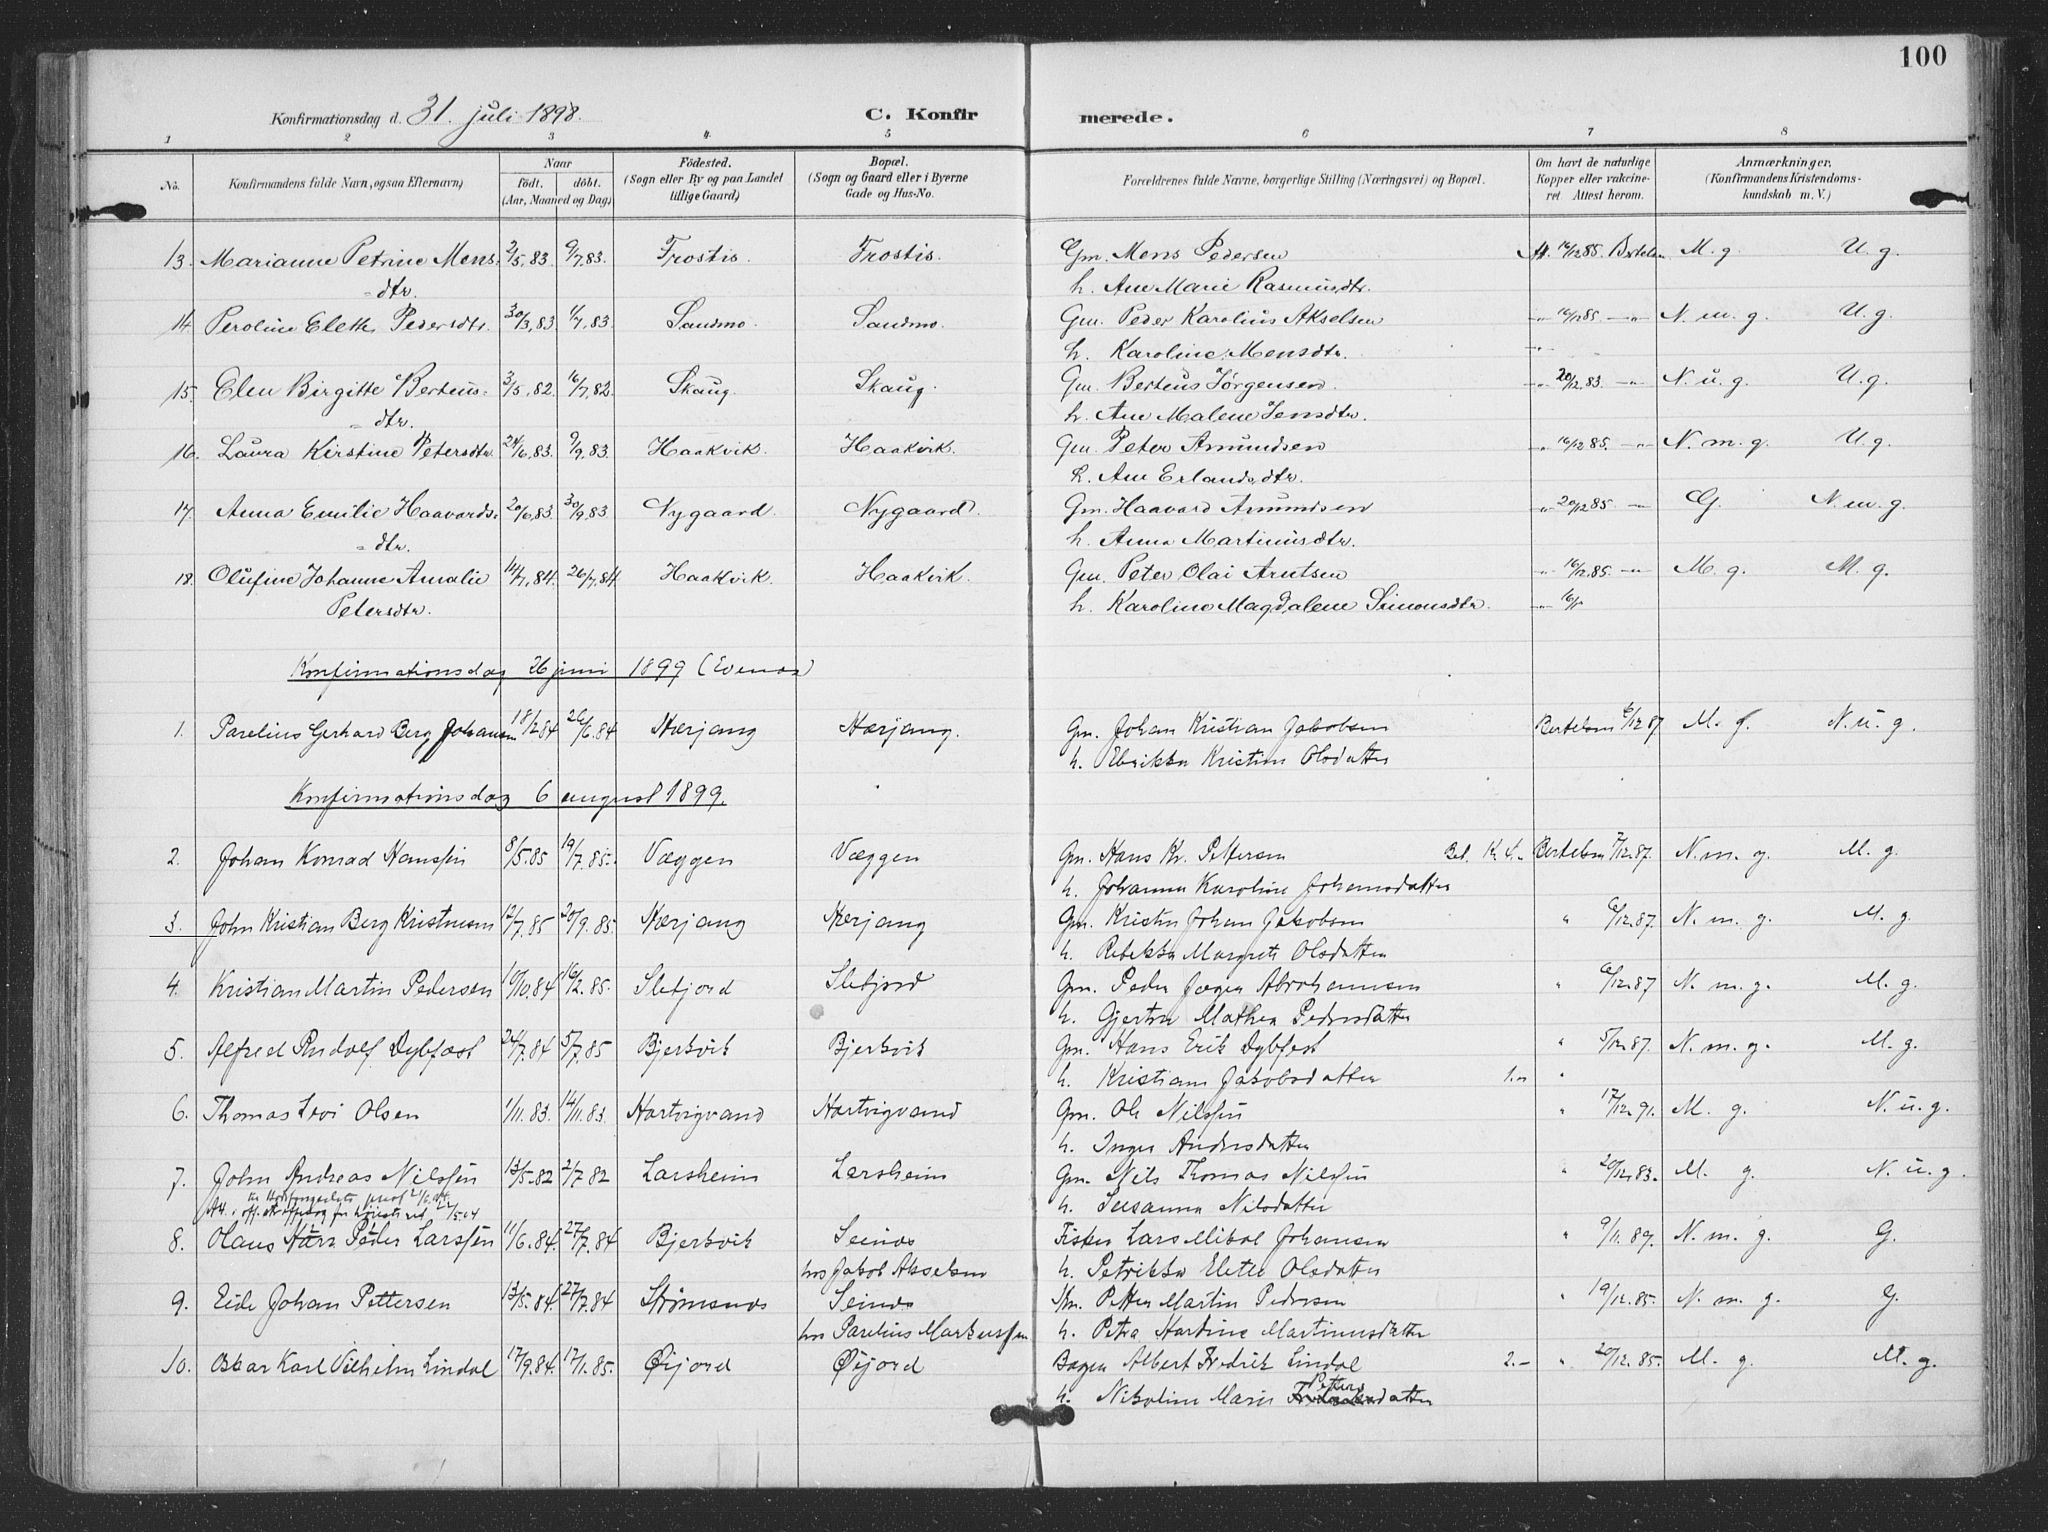 100
Konfirmationsdag d. 31. juli 1898. C. Konfir merede.
1 2 3 4. 5 6 7 8
No. Konfirmandens fulde Navn, ogsaa Efternavn) Naar födt. döbt. (Aar, Maaned og Dag) Födested. (Sogn eller By og paa Landet tillige Gaard) Bopæl. (Sogn og Gaard eller i Byerne Gade og Hus-No. Forældrenes fulde Navne, borgerlige Stilling (Næringsvei) og Bopæl. Om havt de naturlige Kopper eller vakcineret Attest herom. Anmærkninger. (Konfirmandens Kristendomskundskab m. V.)
13. Marianne Petrine Mens= 2/5.83. 9/7.83. Trostis. Trostis. Gm. Mens Pedersen At. 16/12 85. Bertelsen M. g. U. g.
=dtr. h. Ane Marie Rasmusdtr.
14. Peroline Eleth. Pedersdtr. 30/3.83. 1/7.83. Sandmo. Sandmo. Gm. Peder Karolius Akselsen -"- 16/12 85. -"- N. m. g. U. g.
h. Karoline Mensdtr. -"-
15. Elen Birgitte Berteus= 3/5.82. 16/7.82. Skaug. Skaug. Gm. Berteus Jørgensen. -"- 20/12.83. -"- N. u. g. U. g.
=dtr. h. Ane Malene Jensdtr.
16. Laura Kirstine Petersdtr. 24/6.83. 9/9.83. Haakvik. Haakvik. Gm. Peter Amundsen -"- 16/12 85. -"- N. m. g. U. g.
h. Ane Erlandsdtr.
17. Anna Emilie Haavards= 20/6.83. 30/9.83 Nygaard. Nygaard. Gm. Haavard Amundsen -"- 20/12 85. -"- G. N. m. g.
=dtr. h. Anna Martinusdtr.
18. Olufine Johanne Amalie 14/7.84. 26/7.84. Haakvik. Haakvik. Gm. Peter Olai Arntsen -"- 16/12.85. -"- M. g. M. g.
Petersdtr. h. Karoline Magdalene Simonsdtr. -"- 16/
Konfirmationsdag 26 juni 1899 (Evenes)
1. Parelius Gerhard Berg Johansen 18/2 84 26/6.84 Herjang Herjang. Gm. Johan Kristian Jakobsen Bertelsen 6/12 87 M. g. N. u. g.
h. Kristine Olsdatter
Konfirmationsdag 6 august 1899.
2. Johan Konrad Hanssen 8/5.85 19/7.85. Væggen Væggen Gm. Hans Kr. Pettersen Bet. Kr. 4.- Bertelsen 7/12.87. N. m. g. M. g.
h. Johanna Karoline Johannesdatter
3. John Kristian Berg Kristensen 12/7.85 20/9.85. Herjang Herjang Gm. Kristen Johan Jakobsen " 6/12.87. N. m. g. M. g.
h. Rebekka Margrete Olsdatter
4. Kristian Martin Pedersen 10/10.84 16/2.85. Slefjord Slefjord Gm. Peder Jæger Abrahamsen " 6/12.87 N. m. g. M. g.
h. Gjertru Mathea Pedersdatter
5. Alfred Rudolf Dybfest 24/7.84 5/7.85 Bjerkvik Bjerkvik Gm. Hans Erik Dybfest " 5/12.87. N. m. g. M. g.
h. Kristiane Jakobsdatter 1.- "
6. Thomas Levi Olsen 1/11.83. 14/11.83. Hartvigvand Hartvigvand Gm. Ole Nilssen " 17/12.91. M. g. N. u. g.
h. Inger Andersdatter
7. John Andreas Nilssen 13/5.82 2/7.82 Larsheim Larsheim Gm. Nils Thomas Nilssen " 20/12.83. M. g. N. u. g.
h. Susanna Nilsdatter
8. Olaus Peder Larssen 11/6.84. 27/7.84 Bjerkvik Seines Fisker Lars Mikal Johansen " 9/11.89. N. m. g. G.
hos Jakob Akselsen h. Petrikke Elete Olsdatter
9. Eide Johan Pettersen 13/5.84. 27/7.84 Strømsnes Seines Petter Martin Pedersen " 19/12.85. N. m. g. G.
hos Parelius Markussen h. Petra Hartine Martinusdatter
10. Oskar Karl Vilhelm Lindal 17/9.84. 17/1.85. Øijord Øijord Albert Fredrik Lindal 2.- " 20/12.85. M. g. M. g.
Petters
h. Nikoline Marie datter